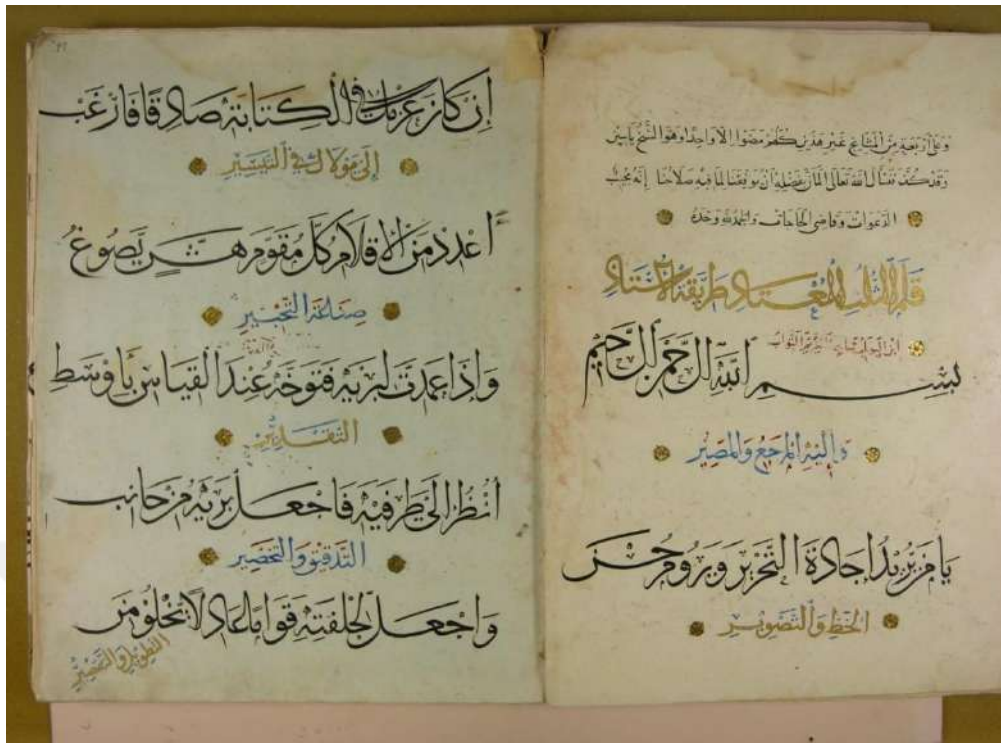 وعلى أربعة من المشايخ غير هذين كلهم مضوا إلا واحدا وهو الشيخ ياسين
وقد كتبت نسأل الله تعالى المان بفضله أن يوفقنا لما فيه صلاحنا إنه مجيب
الدعوات وقاضي الحاجات والحمد لله وحده
قلم الثلث المعتاد طريقة الأستاذ
ابن البواب
بسم الله الرحمن الرحيم
وإليه المرجع والمصير
يا من يريد إجادة التحرير ويروم حسن
الخط والتصوير
إن كان عزمك في الكتابة صادقا فارغب
إلى مولاك في التيسير
أعدد من الأقلام كل مقوم هش يصوغ
صناعة التحبير
وإذا عمدت لبريه فتوخه عند القياس بأوسط
التقدير
أنظر إلى طرفيه فاجعل بريه من جانب
التدقيق والتخصير
واجعل لجلفته قواما عادلا يخلو من
التطويل والتقصير